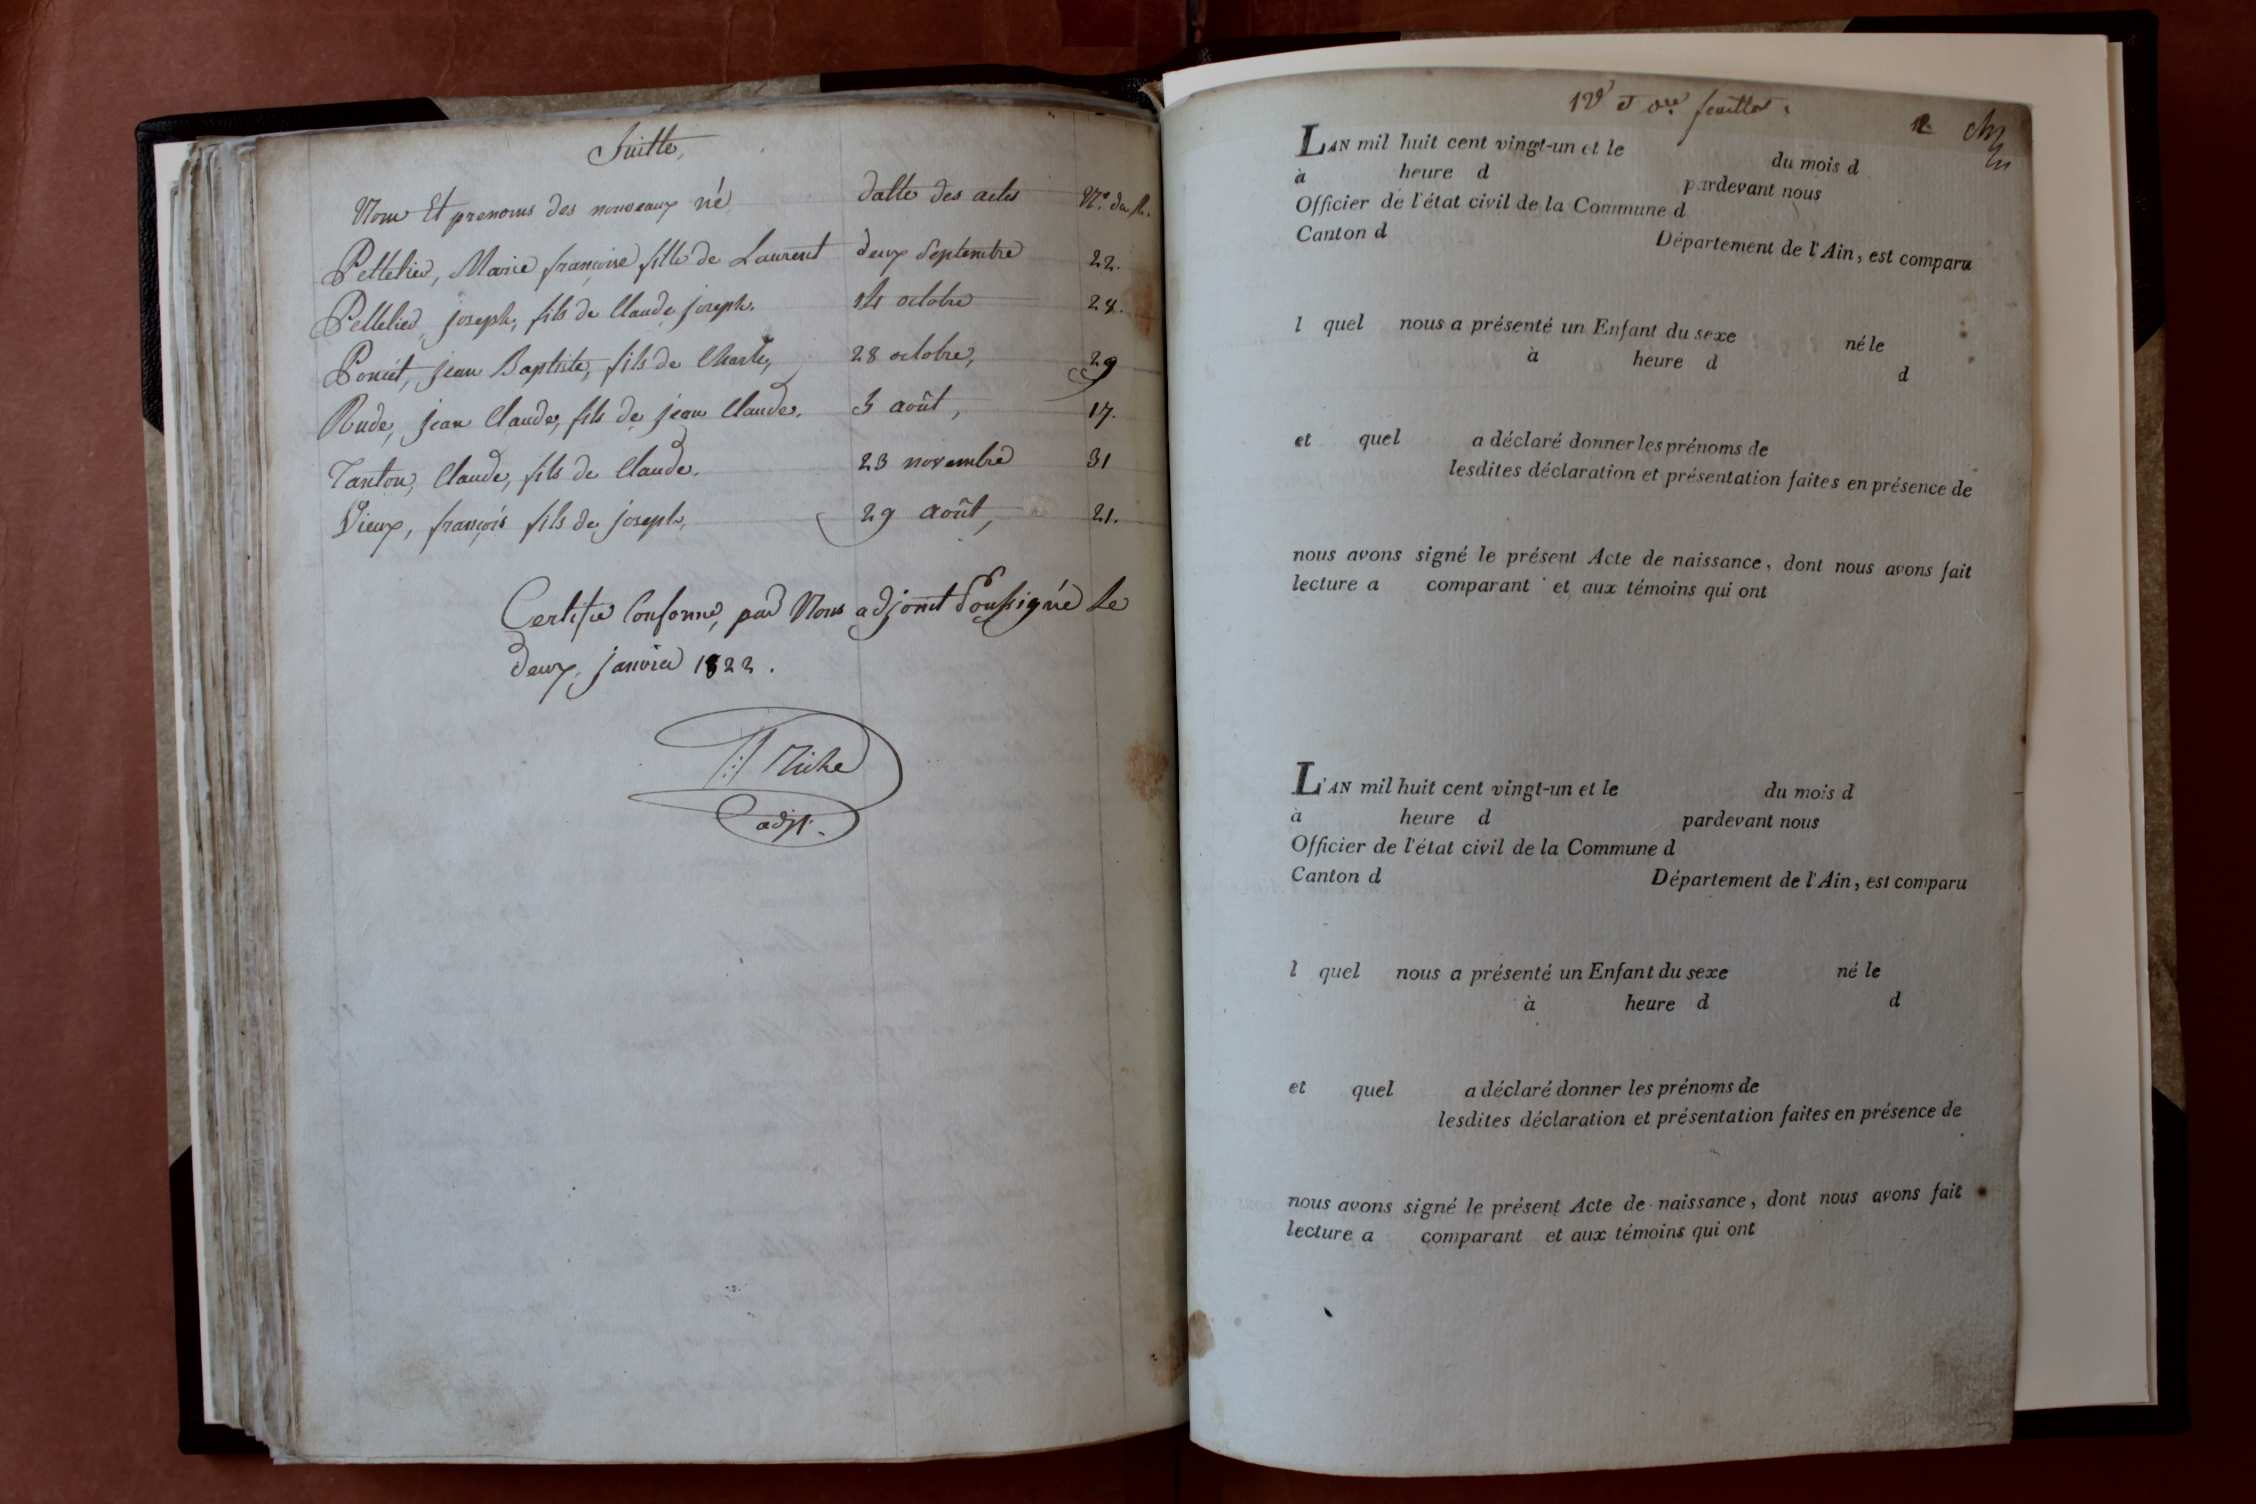 Suitte,
Nom Et prenoms des nouveaux né datte des actes N.o du R.
Pelletier, Marie françoise fille de Laurent deux Septembre 22.
Pelletier, joseph, fils de Claude joseph. 14 octobre 28.
Poncet, jean Baptiste, fils de Charle, 28 octobre, 29
Rude, jean Claude, fils de jean Claude. 3 août, 17.
Tanton, Claude, fils de Claude. 23 novembre 31
Vieux, françois fils de joseph, 29 août, 21.
Certifié Conforme, par Nous adjoint Soussigné Le
deux janvier 1822.
adjt.
12e et feuillet.
L'AN mil huit cent vingt-un et le du mois d
à heure d pardevant nous
Officier de l'état civil de la Commune d
Canton d Département de l'Ain, est comparu
l quel nous a présenté un Enfant du sexe né le
à heure d d
et quel a déclaré donner les prénoms de
lesdites déclaration et présentation faites en présence de
nous avons signé le présent Acte de naissance, dont nous avons fait
lecture a comparant et aux témoins qui ont
L'AN mil huit cent vingt-un et le du mois d
à heure d pardevant nous
Officier de l'état civil de la Commune d
Canton d Département de l'Ain, est comparu
l quel nous a présenté un Enfant du sexe né le
à heure d d
et quel a déclaré donner les prénoms de
lesdites déclaration et présentation faites en présence de
nous avons signé le présent Acte de naissance, dont nous avons fait
lecture a comparant et aux témoins qui ont